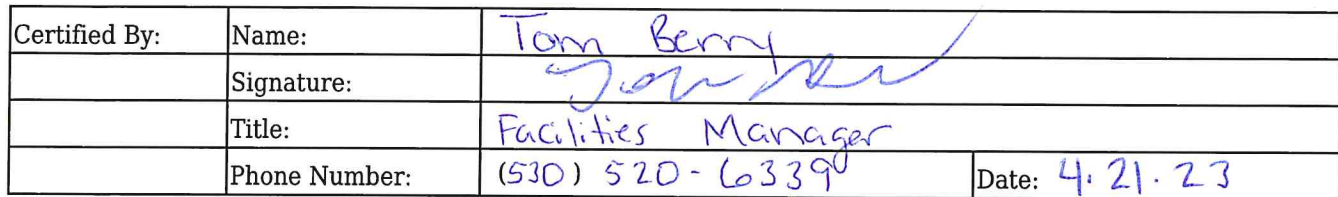 Certified By: Name: Tom Berry
Signature:
Title: Facilities Manager
Phone Number: (530) 520-6339 Date: 4.21.23